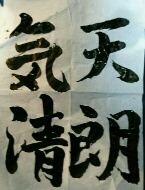 天朗
気清